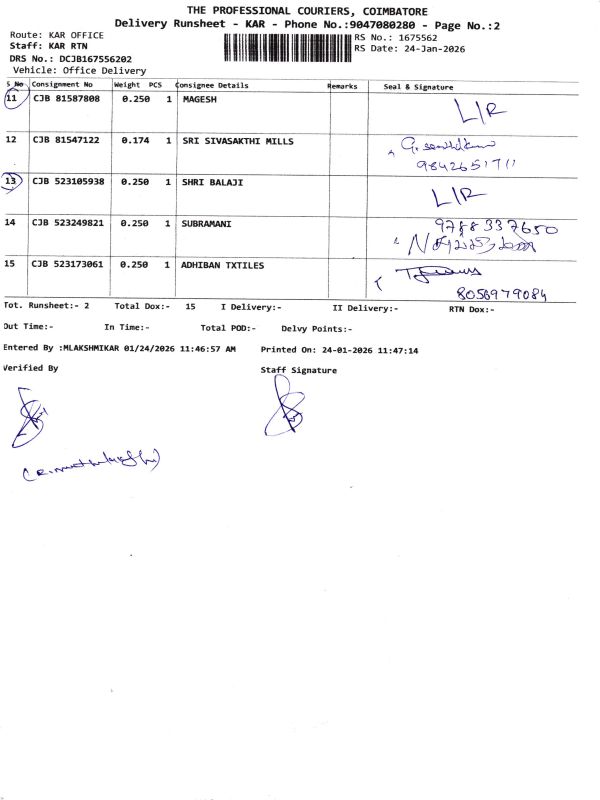 THE PROFESSIONAL COURIERS, COIMBATORE
Delivery Runsheet - KAR - Phone No.:9047080280 - Page No.:2
Route: KAR OFFICE
RS No.: 1675562
Staff: KAR RTN
RS Date: 24-Jan-2026
DRS No.: DCJB167556202
Vehicle: Office Delivery
S No Consignment No Weight PCS Consignee Details Remarks Seal & Signature
11 CJB 81587808 0.250 1 MAGESH L/R
12 CJB 81547122 0.174 1 SRI SIVASAKTHI MILLS
13 CJB 523105938 0.250 1 SHRI BALAJI L/R
14 CJB 523249821 0.250 1 SUBRAMANI 9788337650
15 CJB 523173061 0.250 1 ADHIBAN TXTILES
8056979084
Tot. Runsheet:- 2 Total Dox:- 15 I Delivery:- II Delivery:- RTN Dox:-
Out Time:- In Time:- Total POD:- Delvy Points:-
Entered By :MLAKSHMIKAR 01/24/2026 11:46:57 AM Printed On: 24-01-2026 11:47:14
Verified By Staff Signature